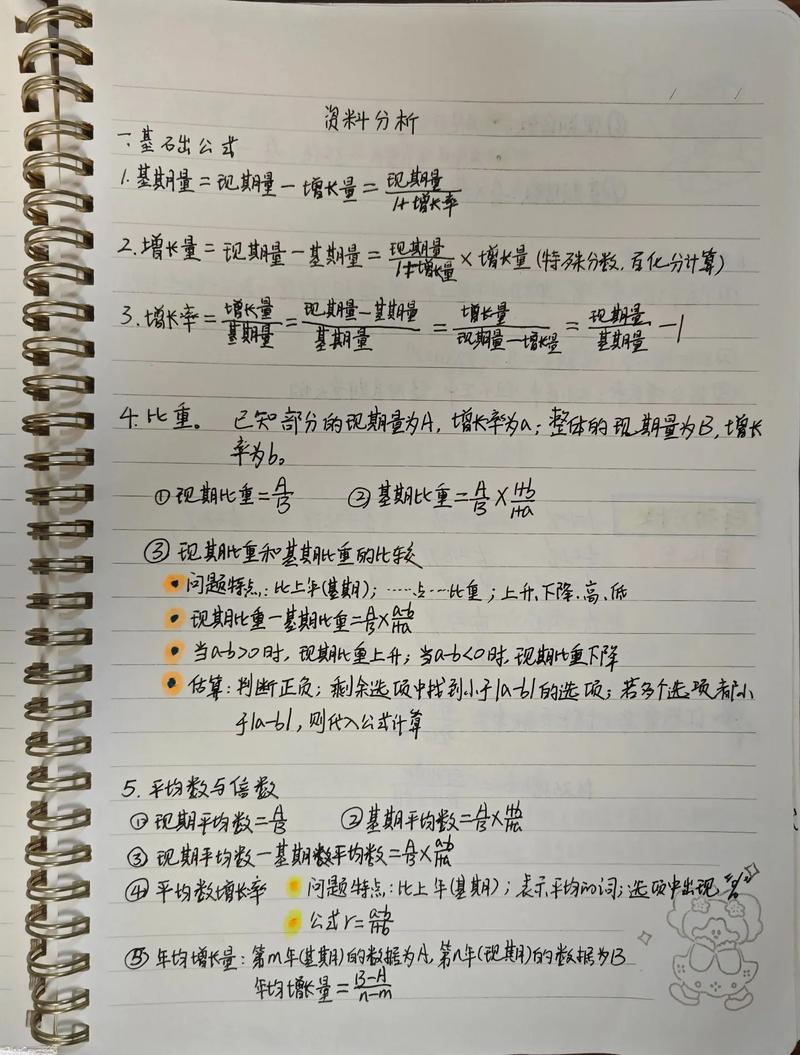 资料分析
一、基础公式
1.基期量=现期量-增长量=现期量/(1+增长率)
2.增长量=现期量-基期量=现期量/(1+增长量)×增长量(特殊分数,百化分计算)
3.增长率=增长量/基期量=(现期量-基期量)/基期量=增长量/(现期量-增长量)=现期量/基期量-1
4.比重。 已知部分的现期量为A,增长率为a;整体的现期量为B,增长
率为b。
①现期比重=A/B ②基期比重=A/B×(1+b)/(1+a)
③现期比重和基期比重的比较
• 问题特点:比上年(基期);……占……比重;上升、下降、高、低
• 现期比重-基期比重=A/B×(a-b)/(1+a)
• 当a-b>0时,现期比重上升;当a-b<0时,现期比重下降
• 估算:判断正负;剩余选项中找到小于|a-b|的选项;若多个选项都小
于|a-b|,则代入公式计算
5.平均数与倍数
①现期平均数=A/B ②基期平均数=A/B×(1+b)/(1+a)
③现期平均数-基期数平均数=A/B×(a-b)/(1+a)
④平均数增长率 • 问题特点:比上年(基期);表示平均的词;选项中出现"%"
• 公式r=(a-b)/(1+b)
⑤年均增长量:第m年(基期)的数据为A,第n年(现期)的数据为B
年均增长量=(B-A)/(n-m)